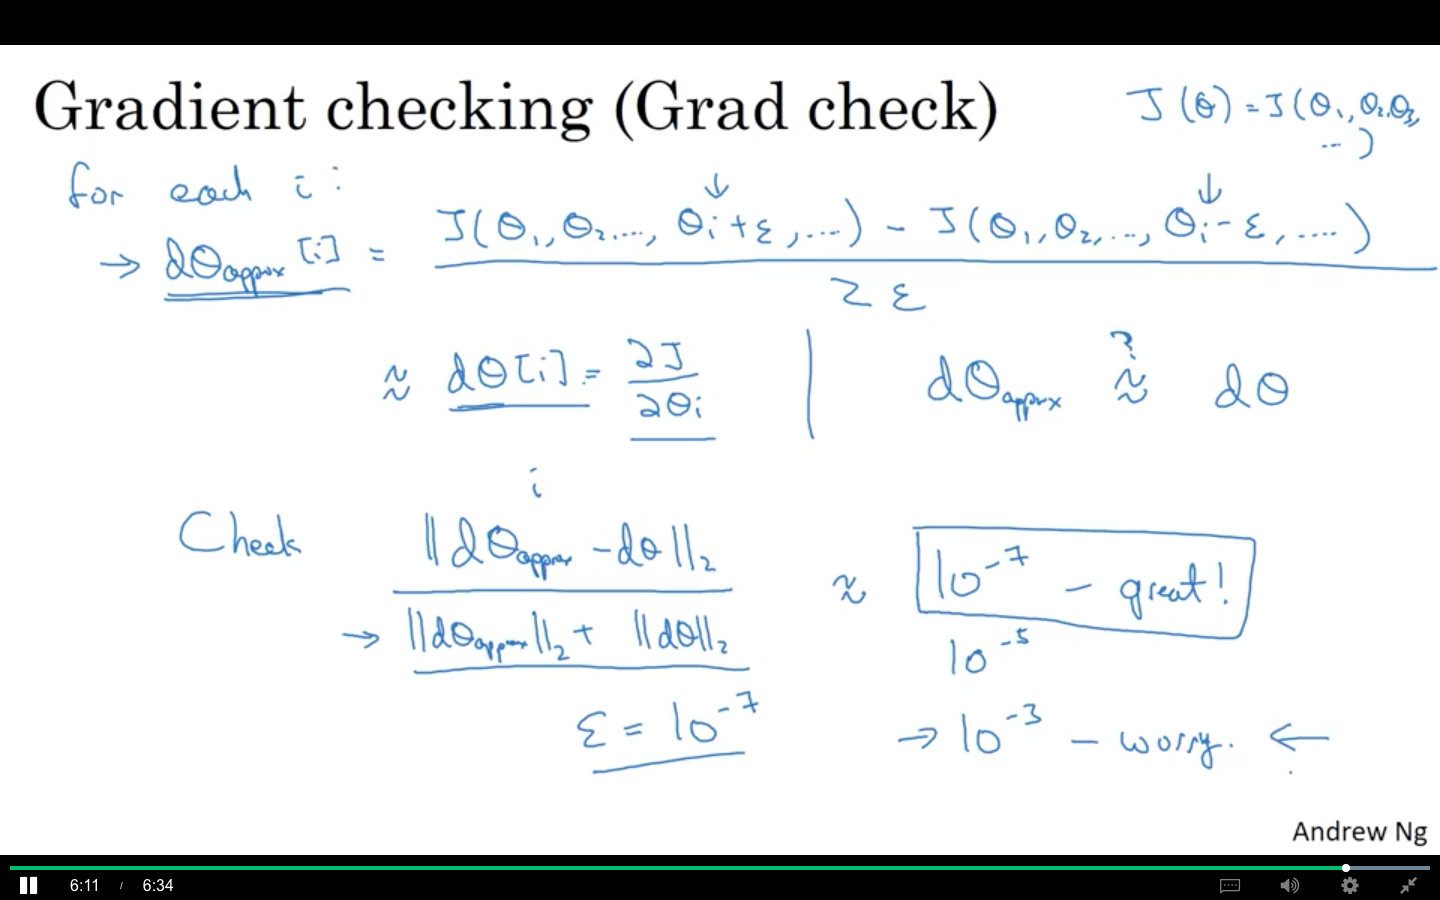 Gradient checking (Grad check)
J(θ) = J(θ₁, θ₂, θ₃, ...)
for each i:
→ dθapprox[i] = J(θ₁, θ₂, ..., θᵢ+ε, ...) - J(θ₁, θ₂, ..., θᵢ-ε, ....) / 2ε
≈ dθ[i] = ∂J/∂θᵢ | dθapprox ≈? dθ
i
Check ||dθapprox - dθ||₂ / ||dθapprox||₂ + ||dθ||₂ ≈ 10⁻⁷ - great!
→
10⁻⁵
ε = 10⁻⁷
→ 10⁻³ - worry. ←
Andrew Ng
6:11 / 6:34